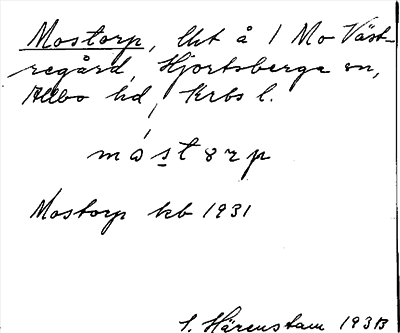 Mostorp, lht å 1 Mo Väst-
regård, Hjortsberga sn,
Allbo hd, Krbs l.
mostorp
Mostorp kb 1931
S. Härenstam 1931